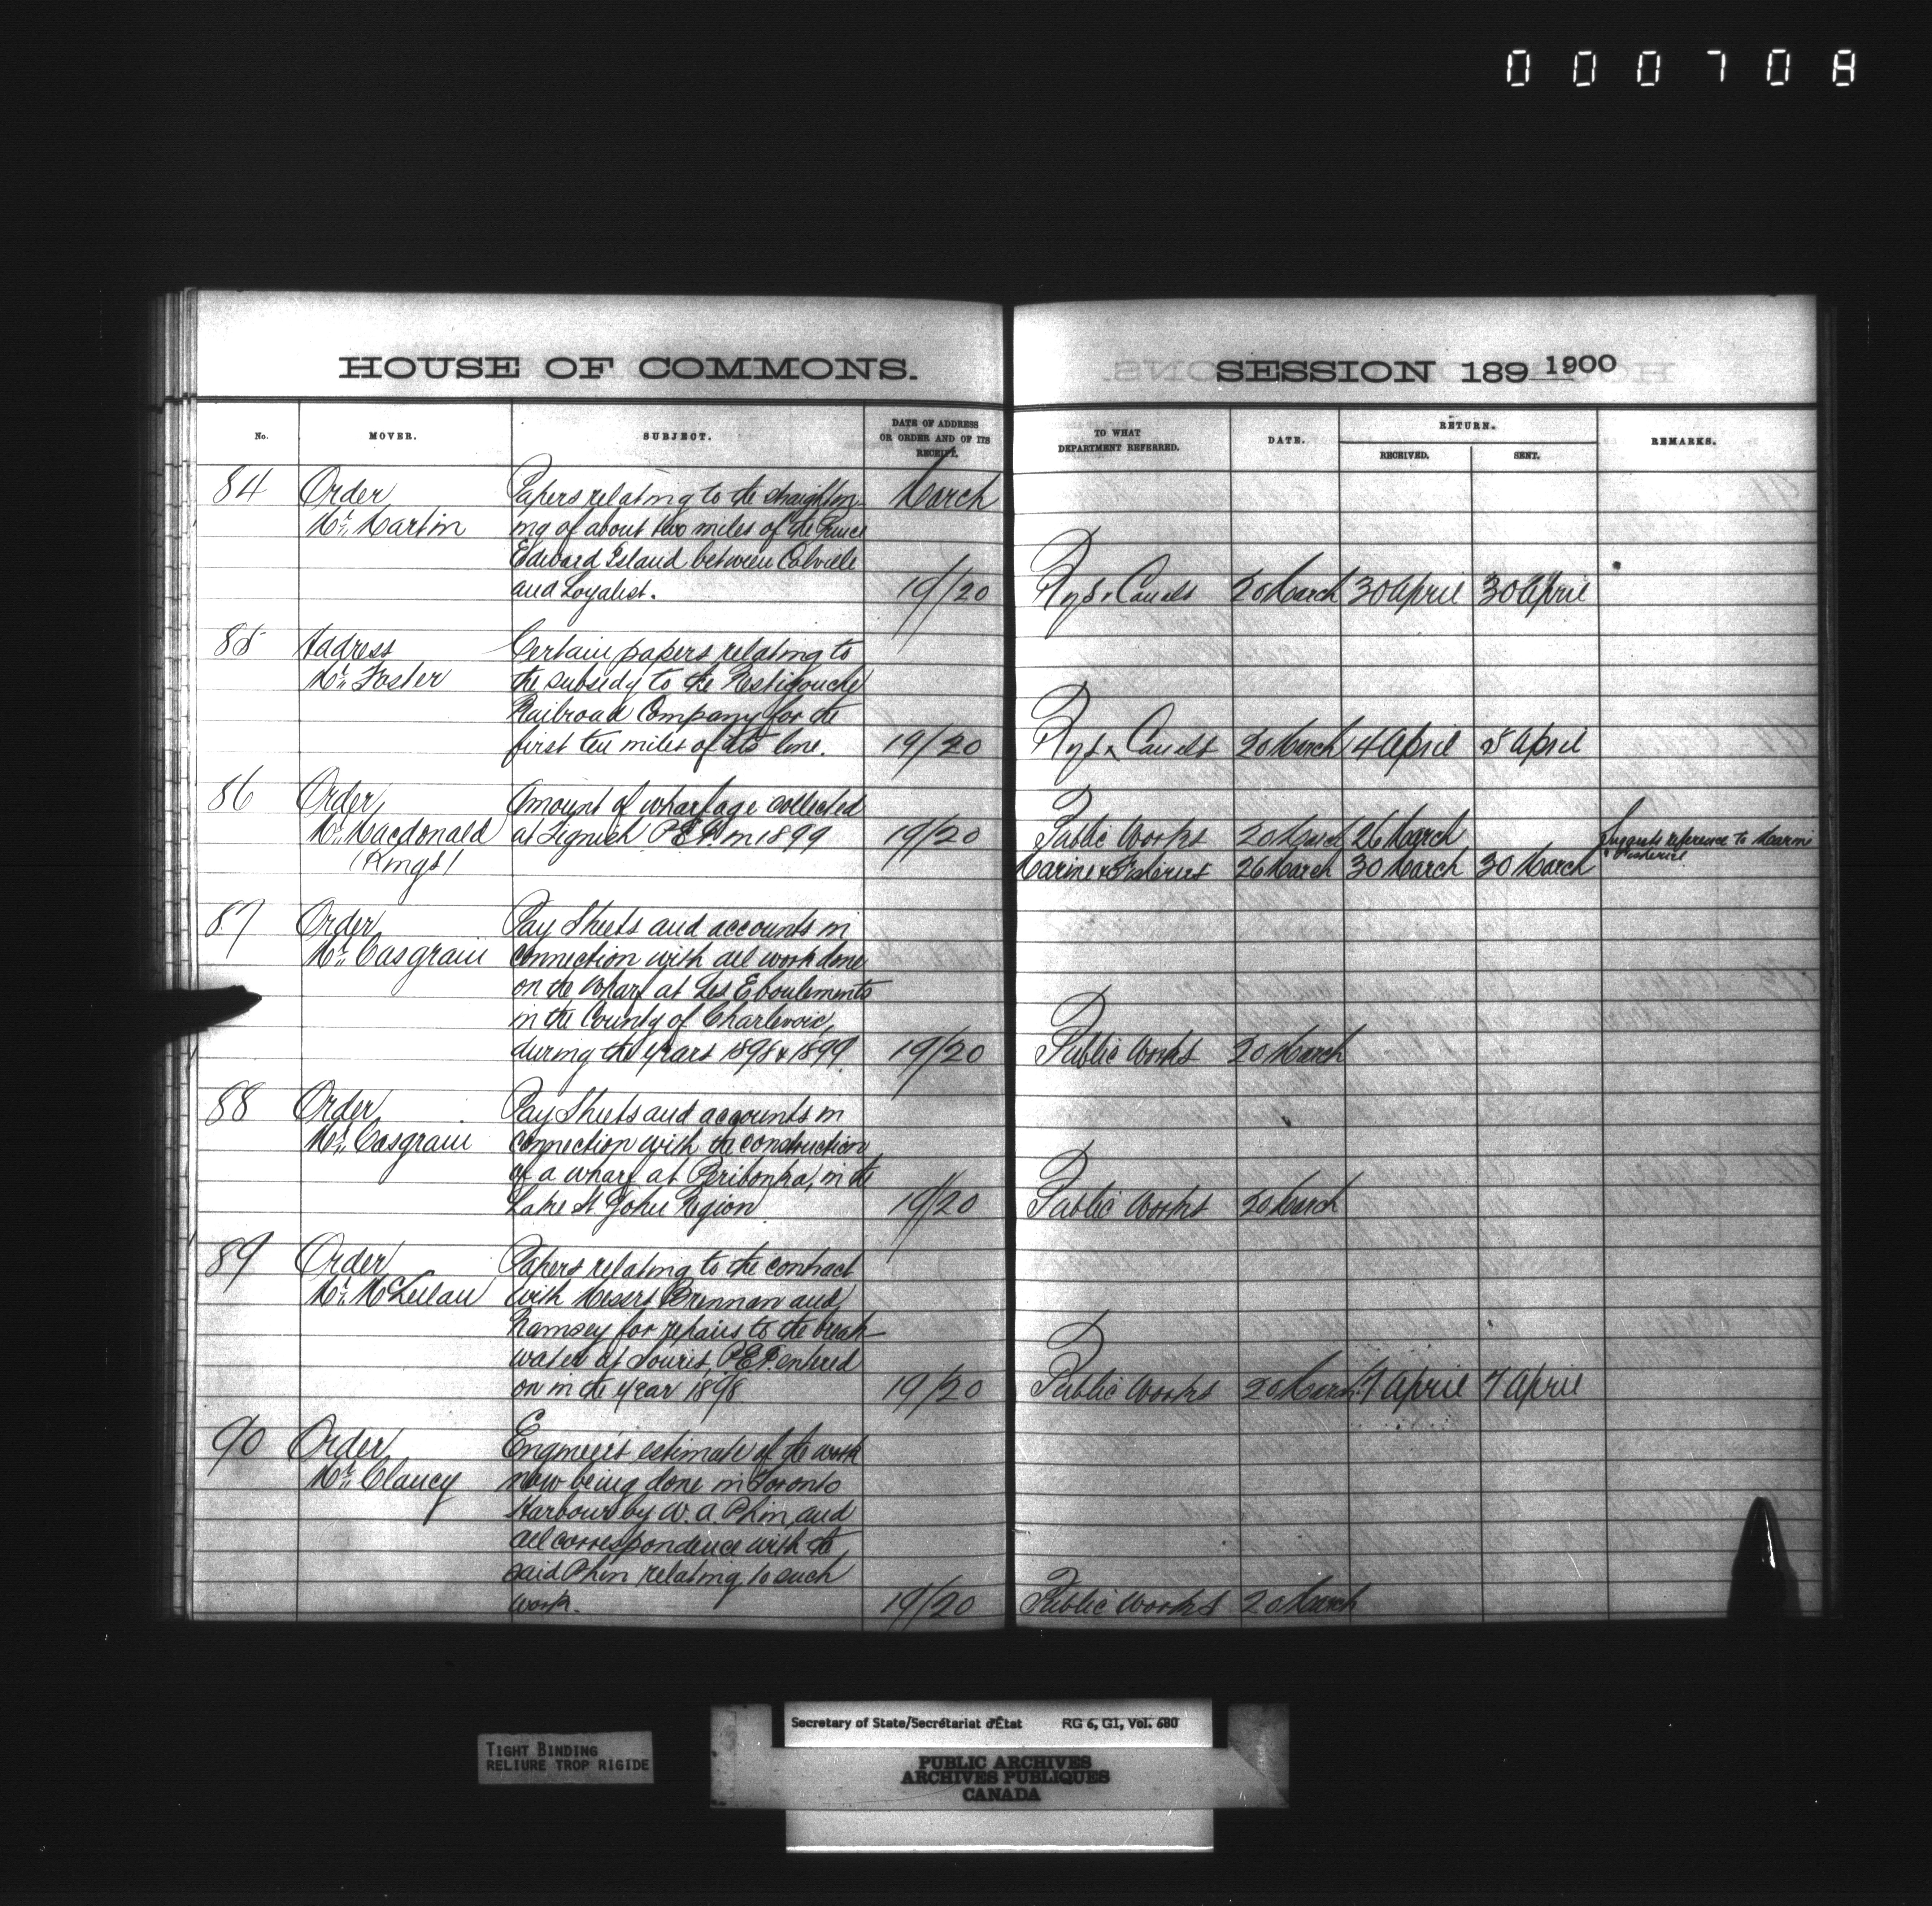 000708
HOUSE OF COMMONS.
SESSION 189 1900
No.
MOVER.
SUBJECT.
DATE OF ADDRESS OR ORDER AND OF ITS RECEIPT.
TO WHAT DEPARTMENT REFERRED.
DATE.
RETURN.
RECEIVED.
SENT.
REMARKS.
84 Order Papers relating to the straighten- March
Mr. Martin ing of about two miles of the Prince
Edward Island between Colville
and Loyalist. 19/20 Rys & Canals 20 March 30 April 30 April
85 Address Certain papers relating to
Mr. Foster the subsidy to the Restigouche
Railroad Company for the
first ten miles of its line. 19/20 Rys & Canals 20 March 4 April 5 April
86 Order Amount of wharfage collected
Mr. Macdonald at Tignish P.E.I. in 1899 19/20 Public Works 20 March 26 March Suggests reference to Marine & Fisheries
(Kings) Marine & Fisheries 26 March 30 March 30 March
87 Order Pay Sheets and accounts in
Mr. Casgrain connection with all work done
on the wharf at Les Eboulements
in the County of Charlevoix,
during the years 1898 & 1899 19/20 Public Works 20 March
88 Order Pay Sheets and accounts in
Mr. Casgrain connection with the construction
of a wharf at Peribonka, in the
Lake St John Region 19/20 Public Works 20 March
89 Order Papers relating to the contract
Mr. McLellan with Messrs Brennan and
Ramsey for repairs to the break-
water at Souris, P.E.I. entered
on in the year 1898 19/20 Public Works 20 March 7 April 7 April
90 Order Engineer's estimate of the work
Mr. Clancy now being done in Toronto
Harbour by W. A. Phin, and
all correspondence with the
said Phin relating to such
work. 19/20 Public Works 20 March
TIGHT BINDING
RELIURE TROP RIGIDE
Secretary of State/Secrétariat d'État RG 6, G1, Vol. 680
PUBLIC ARCHIVES
ARCHIVES PUBLIQUES
CANADA